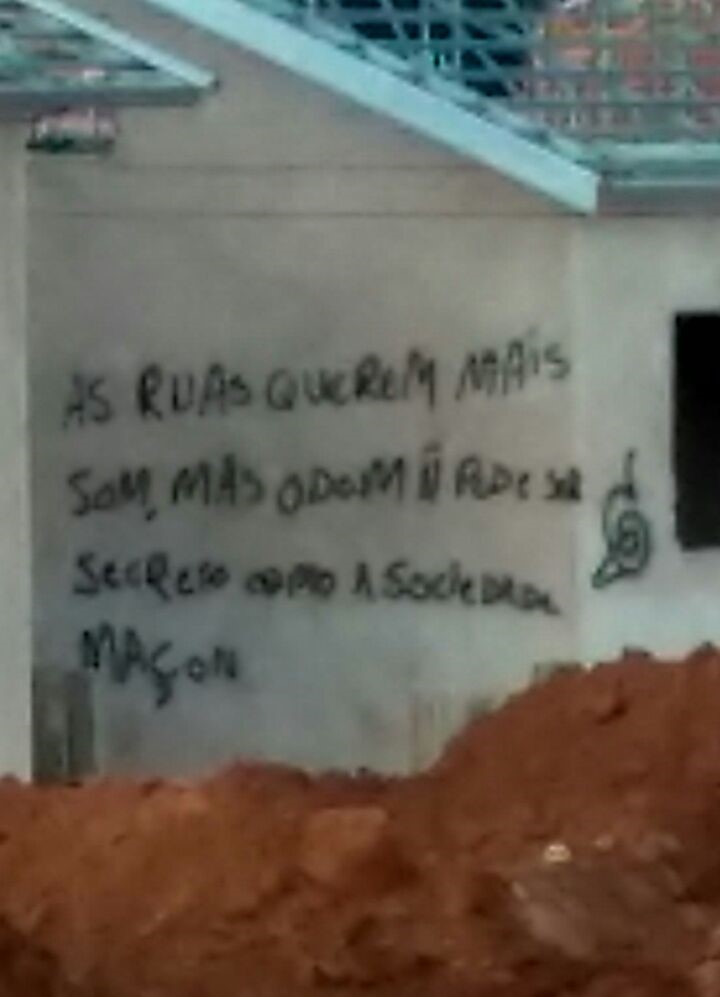 AS RUAS QUEREM MAIS
SOM, MAS O DOM Ñ PODE SER
SECRETO COMO A SOCIEDADE
MAÇON